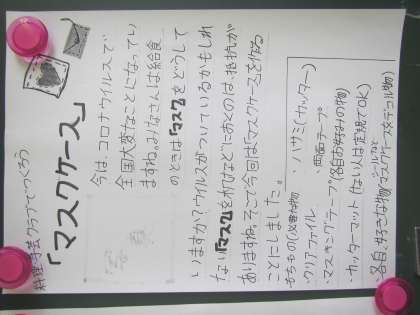 料理・手芸クラブでつくろう
「マスクケース」
今は、コロナウイルスで
全国大変なことになってい
ますね。みなさんは給食
のときは「マスク」をどうして
いますか？ウイルスがついているかもしれ
ない「マスク」を机などにおくのは、抵抗が
ありますね。そこで今回は「マスクケース」を作る
ことにしました。
もちもの(必要な物)
・ハサミ(カッター)
・クリアファイル
・両面テープ
・マスキングテープ(各自お好みの物)
・カッターマット(ない人は定規でOK)
各自、好きな物(マスクケースをデコる物)